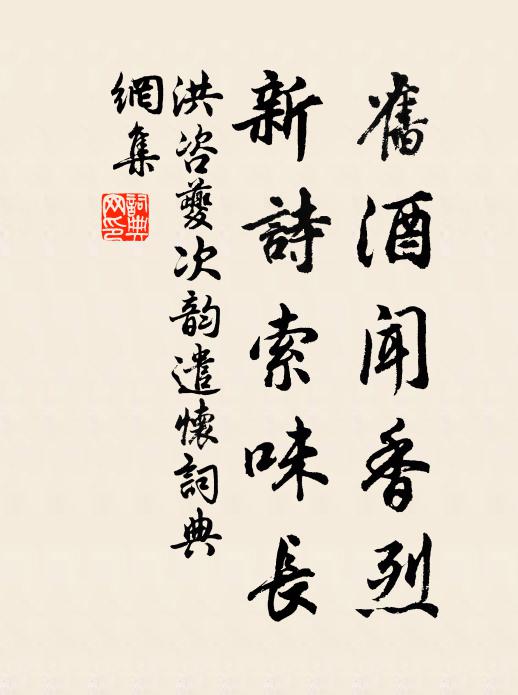 舊酒聞香烈
新詩索味長
洪咨夔次韵遣懷詞典
網集
詞典
网印